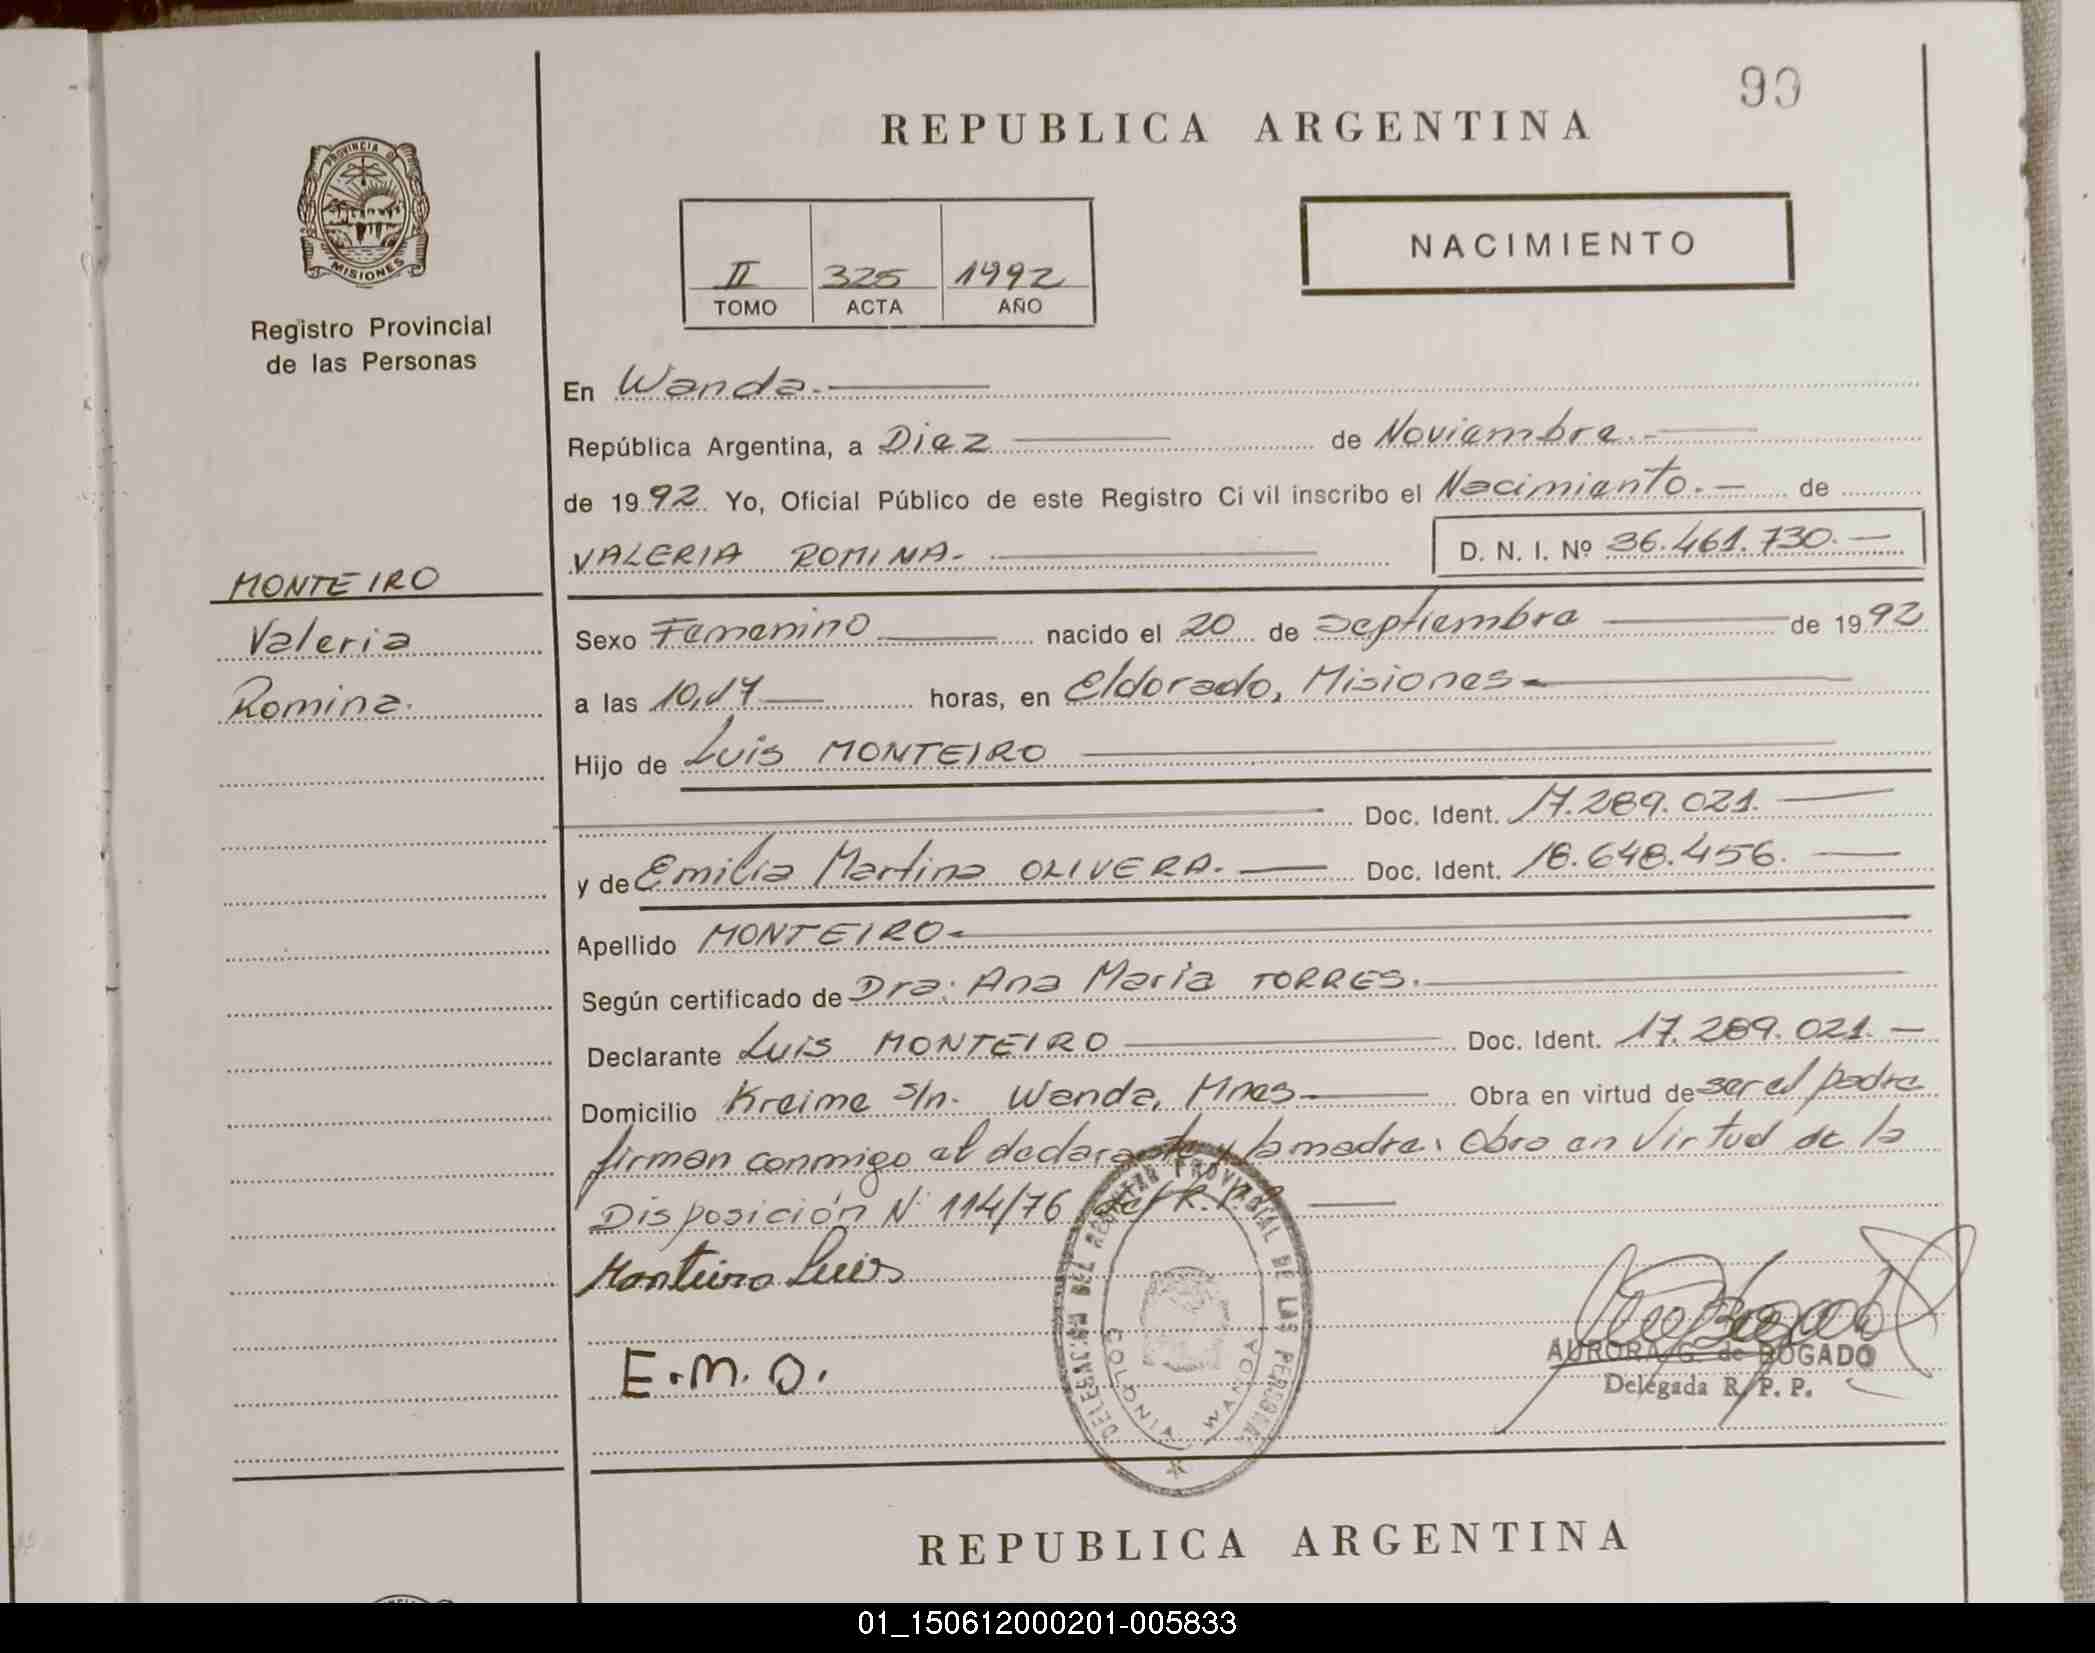 99
REPUBLICA ARGENTINA
PROVINCIA DE
MISIONES
Registro Provincial
de las Personas
II 325 1992
TOMO ACTA AÑO
NACIMIENTO
En Wanda.
República Argentina, a Diez de Noviembre.
de 1992 Yo, Oficial Público de este Registro Civil inscribo el Nacimiento. de
VALERIA ROMINA. D. N. I. Nº 36.461.730.
MONTEIRO
Valeria
Romina.
Sexo Femenino nacido el 20 de Septiembre de 1992
a las 10,17 horas, en Eldorado, Misiones
Hijo de Luis MONTEIRO
Doc. Ident. 17.289.021.
y de Emilia Martina OLIVERA. Doc. Ident. 18.648.456.
Apellido MONTEIRO
Según certificado de Dra: Ana Maria TORRES.
Declarante Luis MONTEIRO Doc. Ident. 17.289.021.
Domicilio Kreime s/n. Wanda, Mnes Obra en virtud de ser el padre
firman conmigo el declarante y la madre. Obra en Virtud de la
Disposición Nº 114/76 del R.P.P.
Monteiro Luis
E.M.O.
DELEGACION DEL REGISTRO PROVINCIAL DE LAS PERSONAS
COLONIA WANDA
AURORA G. de BOGADO
Delegada R. P. P.
REPUBLICA ARGENTINA
01_150612000201-005833